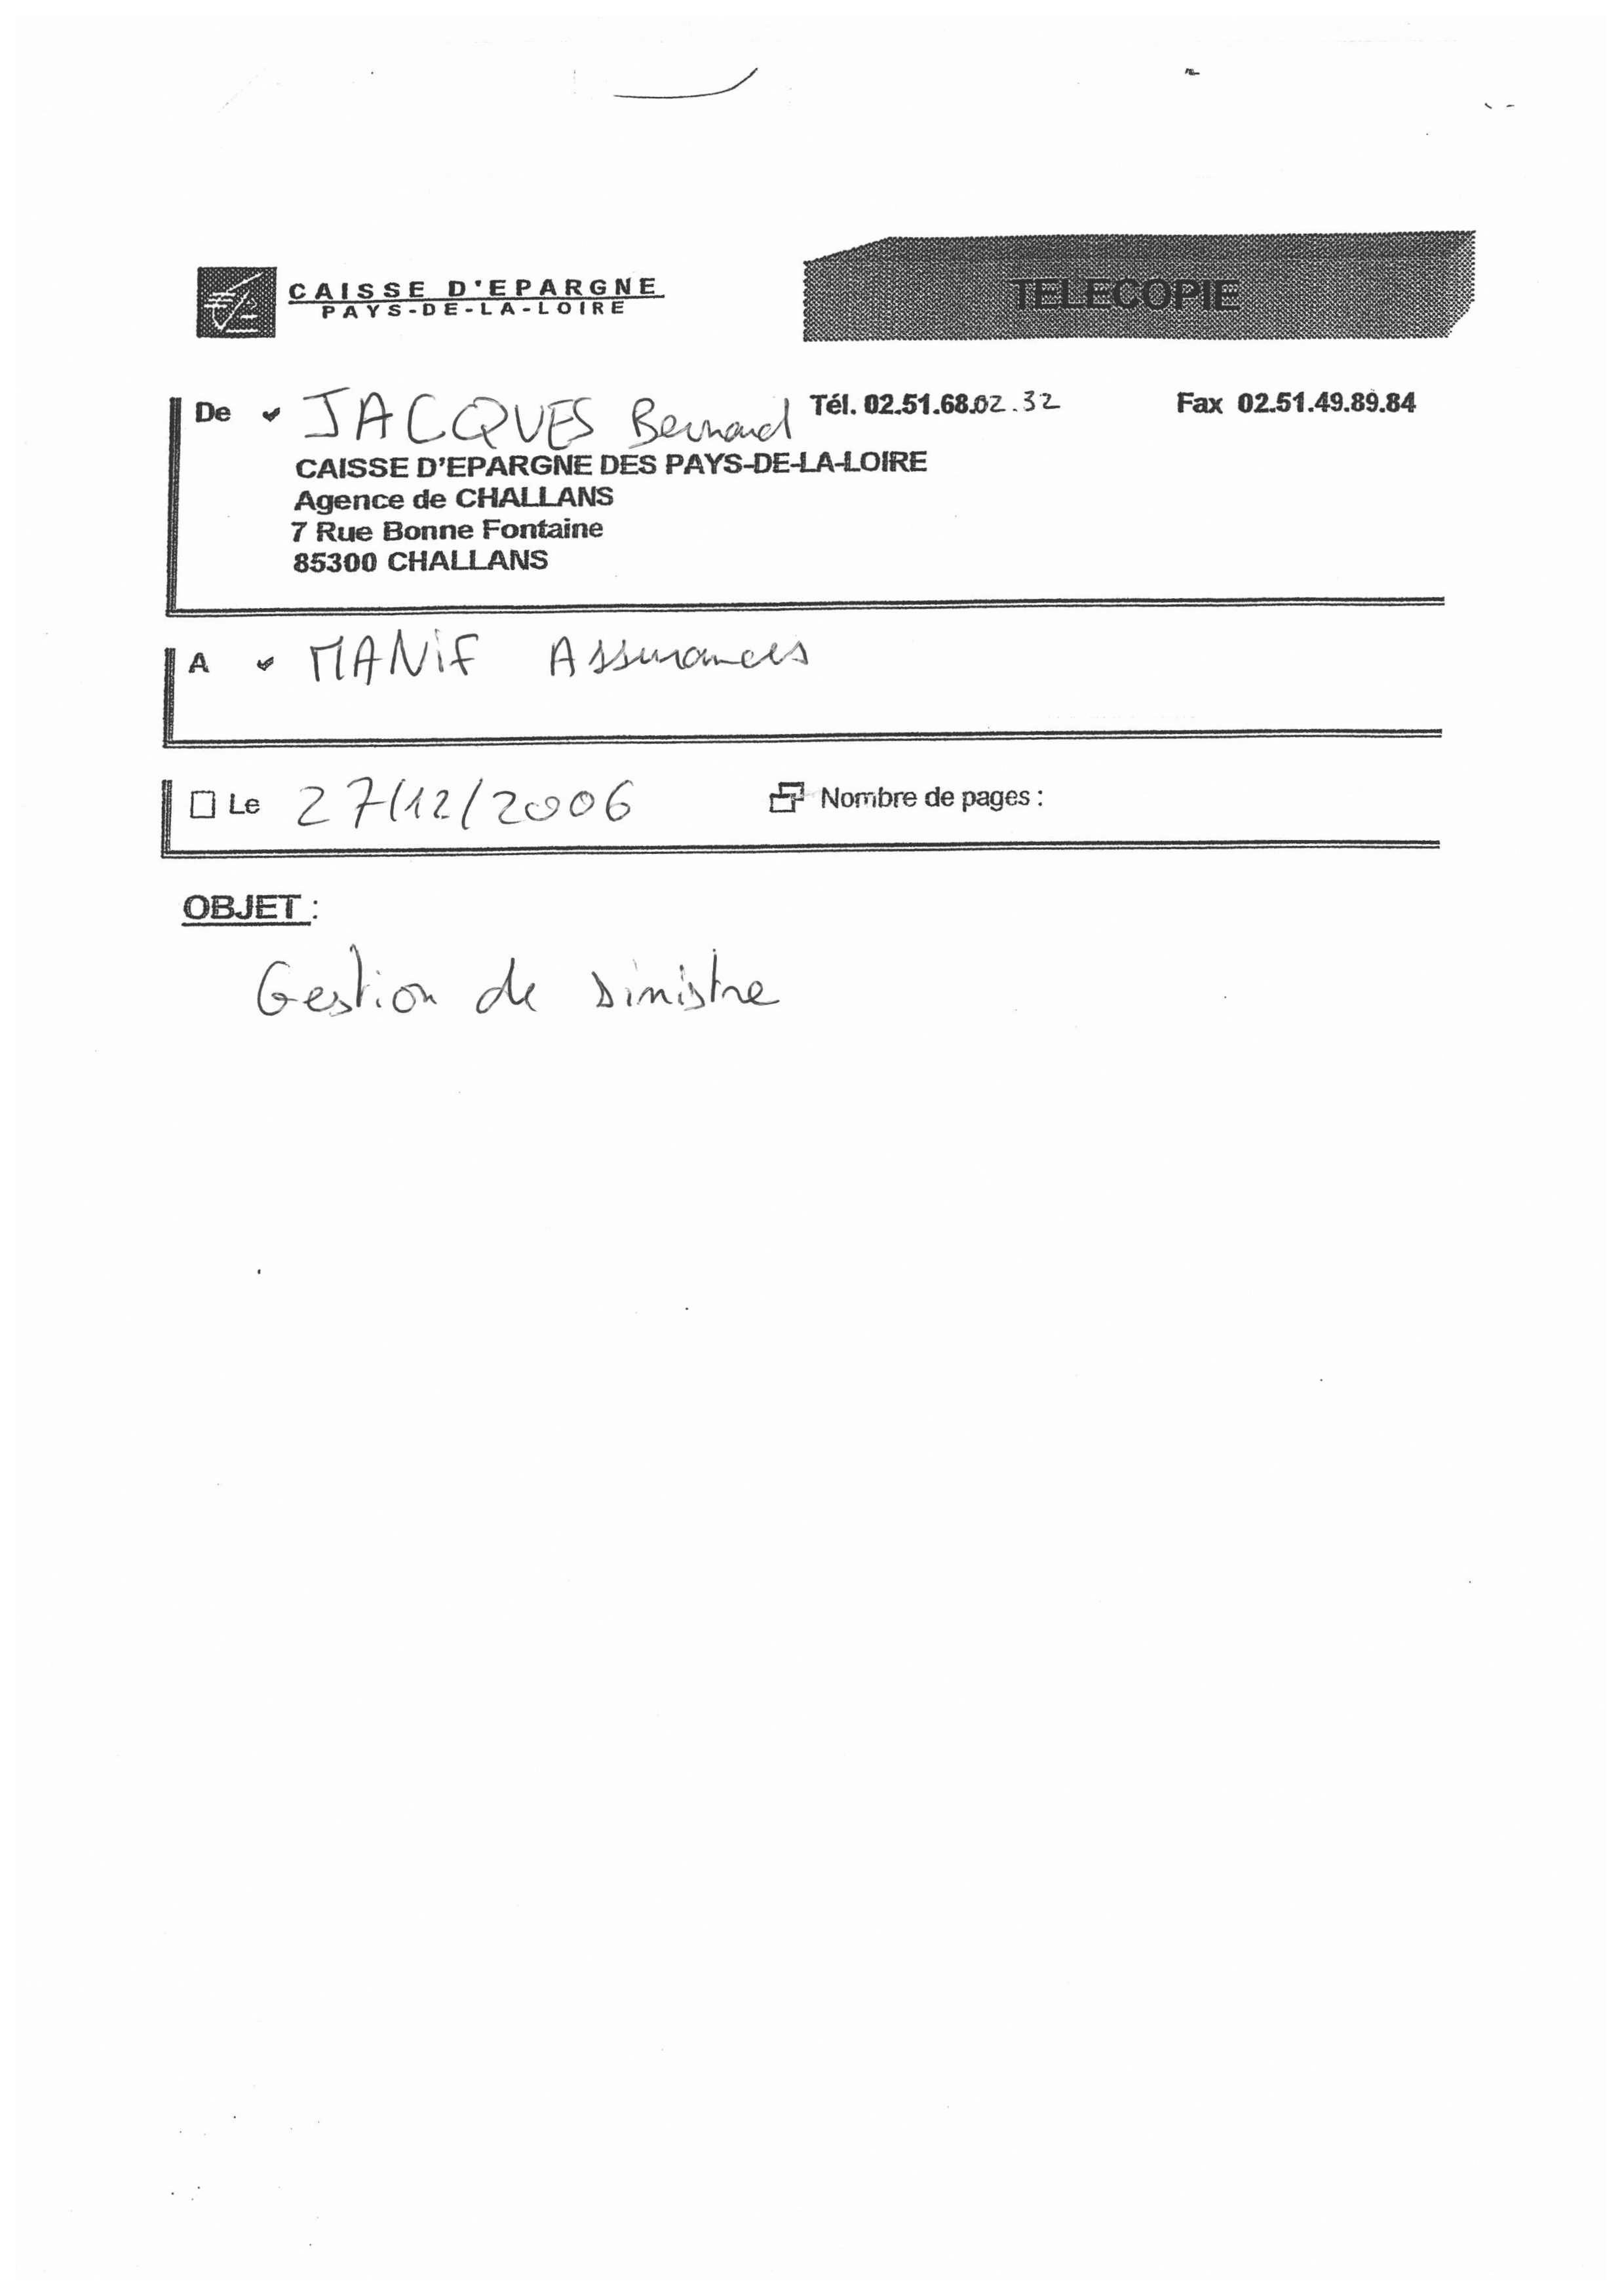 CAISSE D'EPARGNE
PAYS-DE-LA-LOIRE
TELECOPIE
De JACQUES Bernard Tél. 02.51.68.02.32 Fax 02.51.49.89.84
CAISSE D'EPARGNE DES PAYS-DE-LA-LOIRE
Agence de CHALLANS
7 Rue Bonne Fontaine
85300 CHALLANS
A MANiF Assurances
Le 27/12/2006 Nombre de pages :
OBJET :
Gestion de sinistre